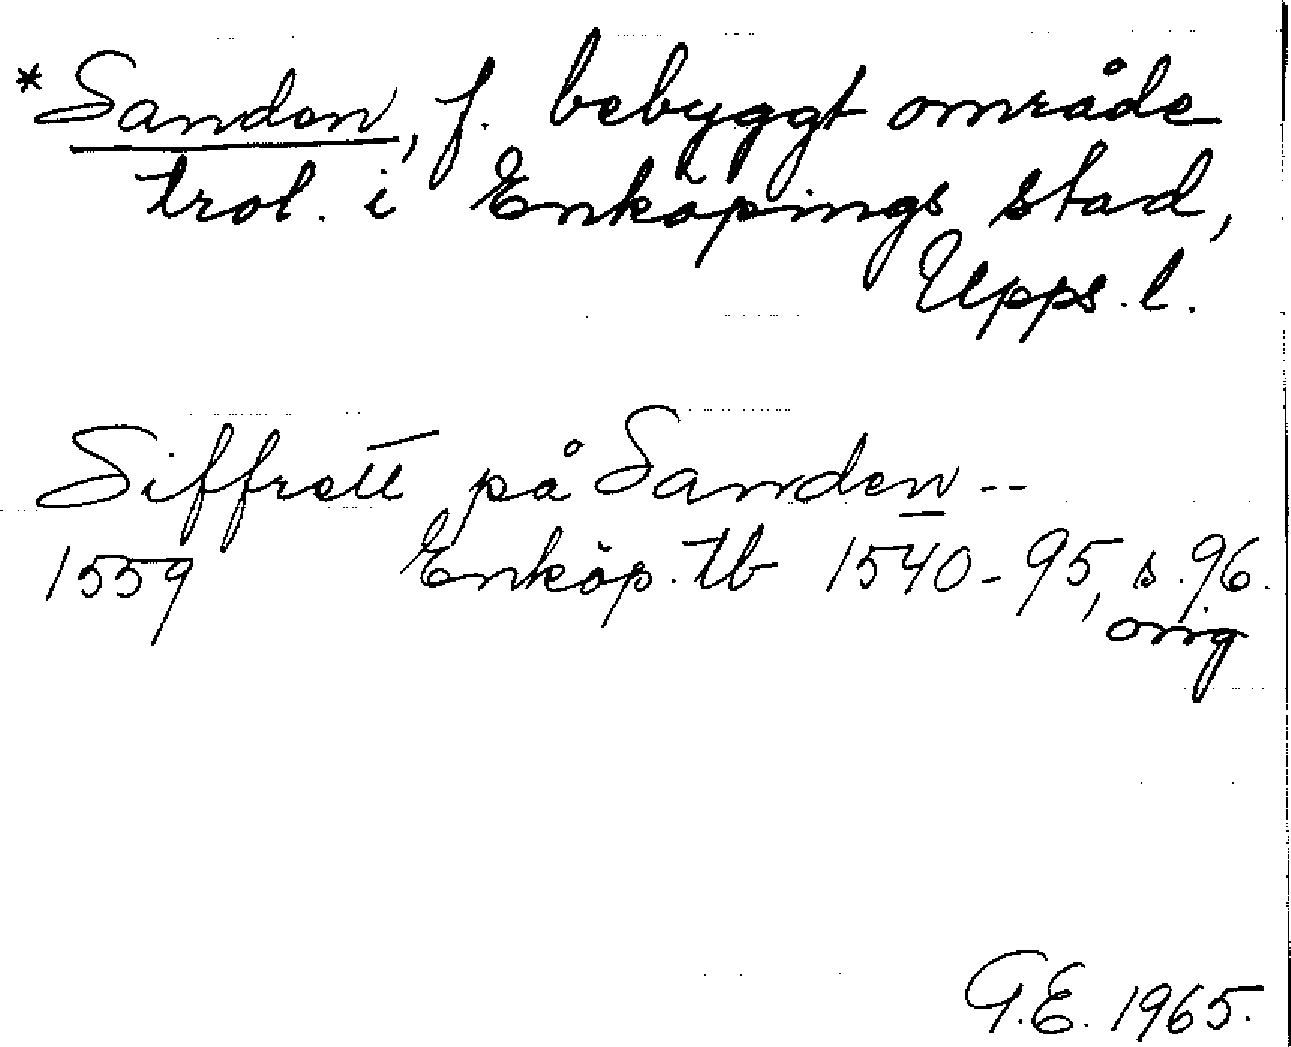 *Sanden, f. bebyggt område
trol. i Enköpings stad,
Upps. l.
Siffrett på Sanden --
1559 Enköp. tb 1540-95, s. 96.
orig
G.E. 1965.